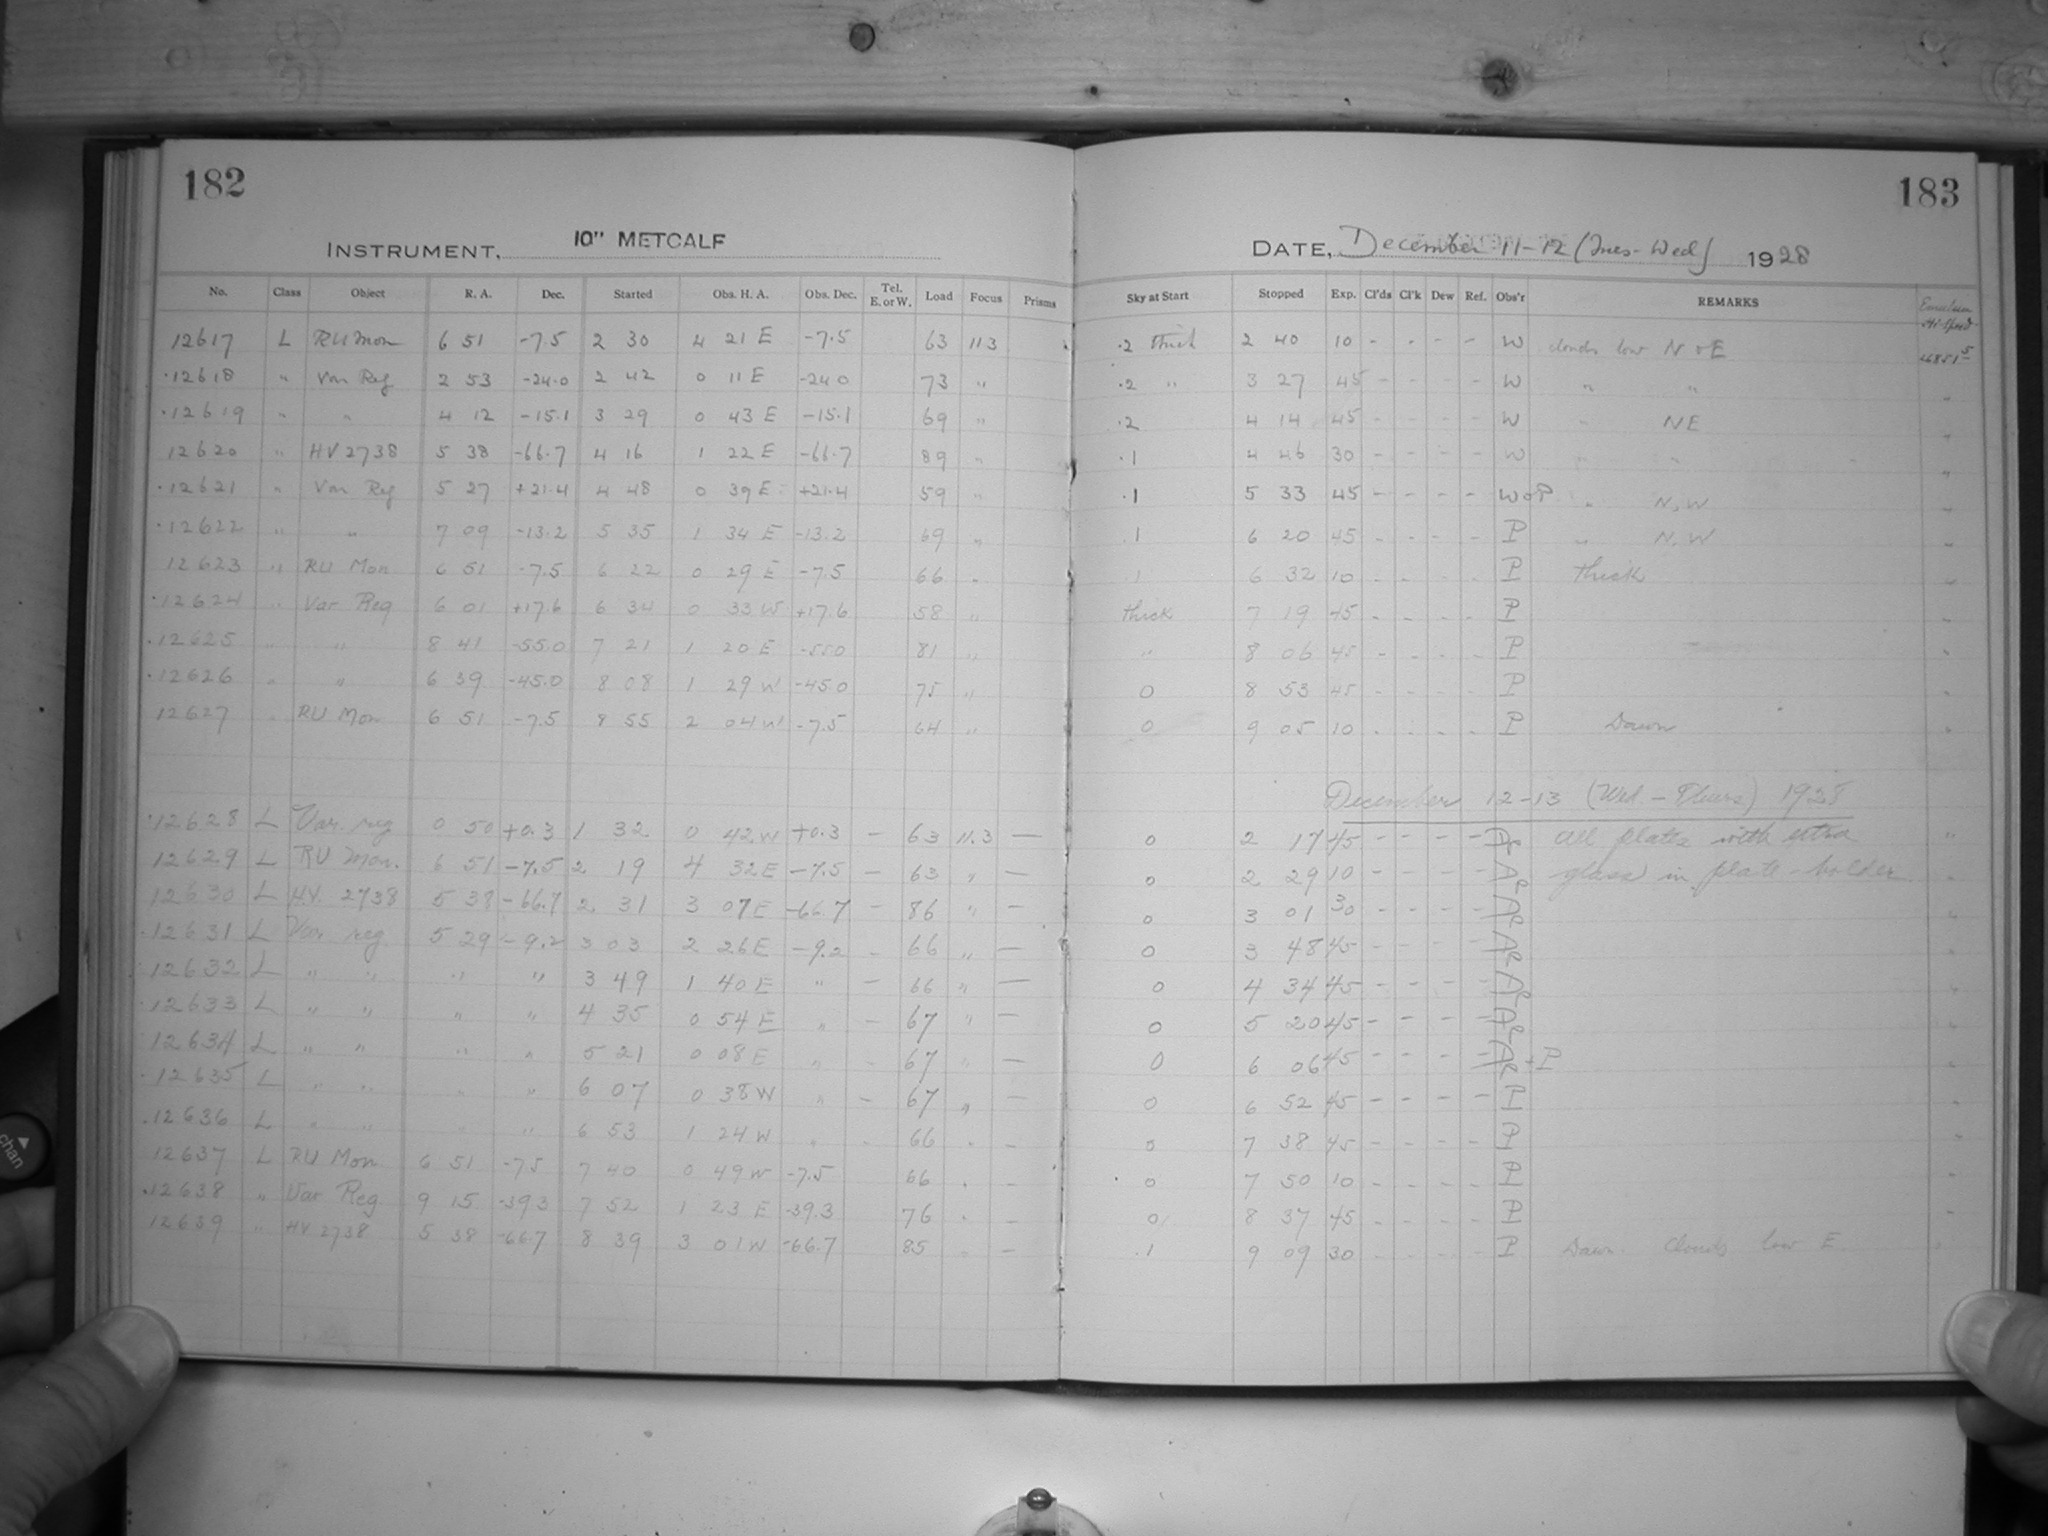 182
INSTRUMENT, 10" METCALF
No. Class Object R. A. Dec. Started Obs. H. A. Obs. Dec. Tel. E. or W. Load Focus Prisms
12617 L RU Mon 6 51 -7.5 2 30 4 21 E -7.5 63 11.3
12618 " Var Reg 2 53 -24.0 2 42 0 11 E -24.0 73 "
12619 " " 4 12 -15.1 3 29 0 43 E -15.1 69 "
12620 " HV 2738 5 38 -66.7 4 16 1 22 E -66.7 89 "
12621 " Var Reg 5 27 +21.4 4 48 0 39 E +21.4 59 "
12622 " " 7 09 -13.2 5 35 1 34 E -13.2 69 "
12623 " RU Mon 6 51 -7.5 6 22 0 29 E -7.5 66 "
12624 " Var Reg 6 01 +17.6 6 34 0 33 W +17.6 58 "
12625 " " 8 41 -55.0 7 21 1 20 E -55.0 81 "
12626 " " 6 39 -45.0 8 08 1 29 W -45.0 75 "
12627 " RU Mon 6 51 -7.5 8 55 2 04 W -7.5 64 "
12628 L Var. reg 0 50 +0.3 1 32 0 42 W +0.3 - 63 11.3 -
12629 L RU Mon. 6 51 -7.5 2 19 4 32 E -7.5 - 63 " -
12630 L HV. 2738 5 38 -66.7 2 31 3 07 E -66.7 - 86 " -
12631 L Var reg. 5 29 -9.2 3 03 2 26 E -9.2 - 66 " -
12632 L " " " " 3 49 1 40 E " - 66 " -
12633 L " " " " 4 35 0 54 E " - 67 " -
12634 L " " " " 5 21 0 08 E " - 67 " -
12635 L " " " " 6 07 0 38 W " - 67 " -
12636 L " " " " 6 53 1 24 W " - 66 " -
12637 L RU Mon 6 51 -7.5 7 40 0 49 W -7.5 66 " -
12638 " Var Reg 9 15 -39.3 7 52 1 23 E -39.3 76 " -
12639 " HV 2738 5 38 -66.7 8 39 3 01 W -66.7 85 " -
183
DATE, December 11-12 (Tues-Wed) 1928
Sky at Start Stopped Exp. Cl'ds Cl'k Dew Ref. Obs'r REMARKS Emulsion Hi-Speed
.2 thick 2 40 10 - - - - W clouds low N & E
.2 " 3 27 45 - - - - W " " "
.2 4 14 45 - - - - W " NE "
.1 4 46 30 - - - - W " " "
.1 5 33 45 - - - - W & P " N, W "
.1 6 20 45 - - - - P " N, W "
.1 6 32 10 - - - - P thick "
thick 7 19 45 - - - - P "
" 8 06 45 - - - - P "
0 8 53 45 - - - - P "
0 9 05 10 - - - - P Dawn "
December 12-13 (Wed. - Thurs) 1928
0 2 17 45 - - - - AR All plates with extra "
0 2 29 10 - - - - AR glass in plate-holder "
0 3 01 30 - - - - AR "
0 3 48 45 - - - - AR "
0 4 34 45 - - - - AR "
0 5 20 45 - - - - AR "
0 6 06 45 - - - - AR + P "
0 6 52 45 - - - - P "
0 7 38 45 - - - - P "
0 7 50 10 - - - - P "
0 8 37 45 - - - - P "
.1 9 09 30 - - - - P Dawn Clouds low E "
chan